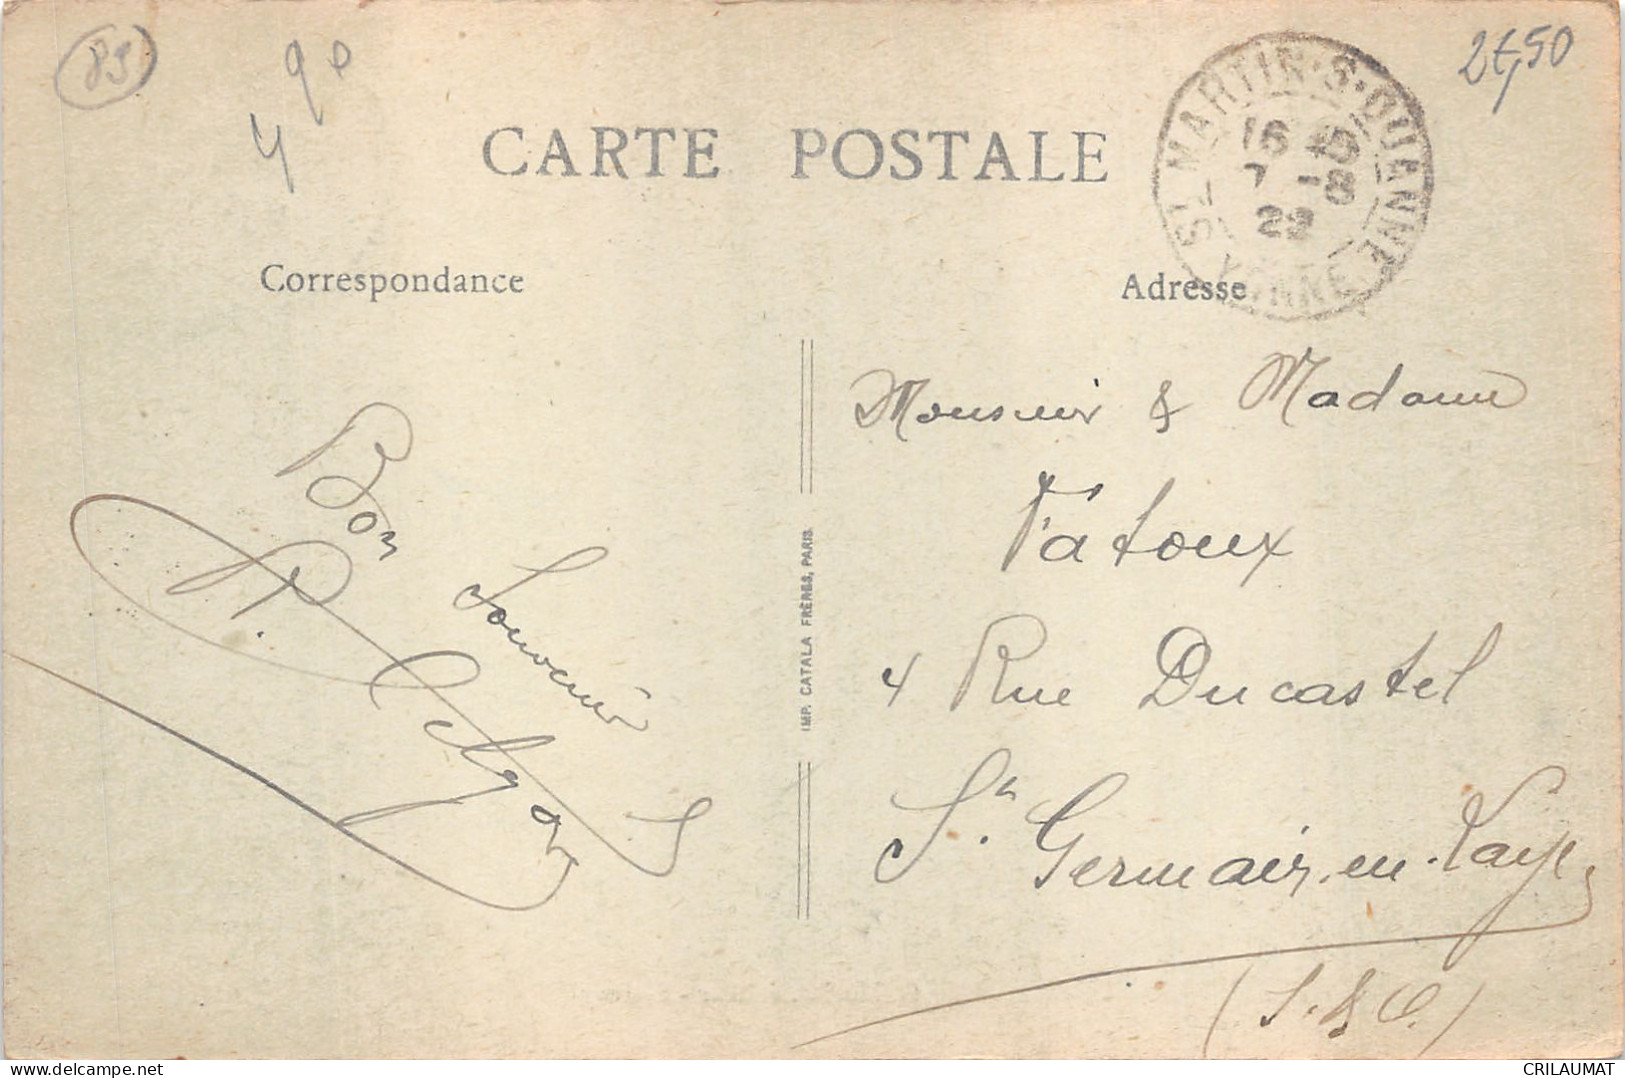 89
4 90
2€,50
CARTE POSTALE
ST MARTIN·S·OUANNE
16 45
7 - 8
29
YONNE
Correspondance
Adresse
Bon
Souvenir
Monsieur & Madame
Vatoux
4 Rue Ducastel
St. Germain-en-Laye
(S. & O.)
IMP. CATALA FRÈRES, PARIS
www.delcampe.net
CRILAUMAT